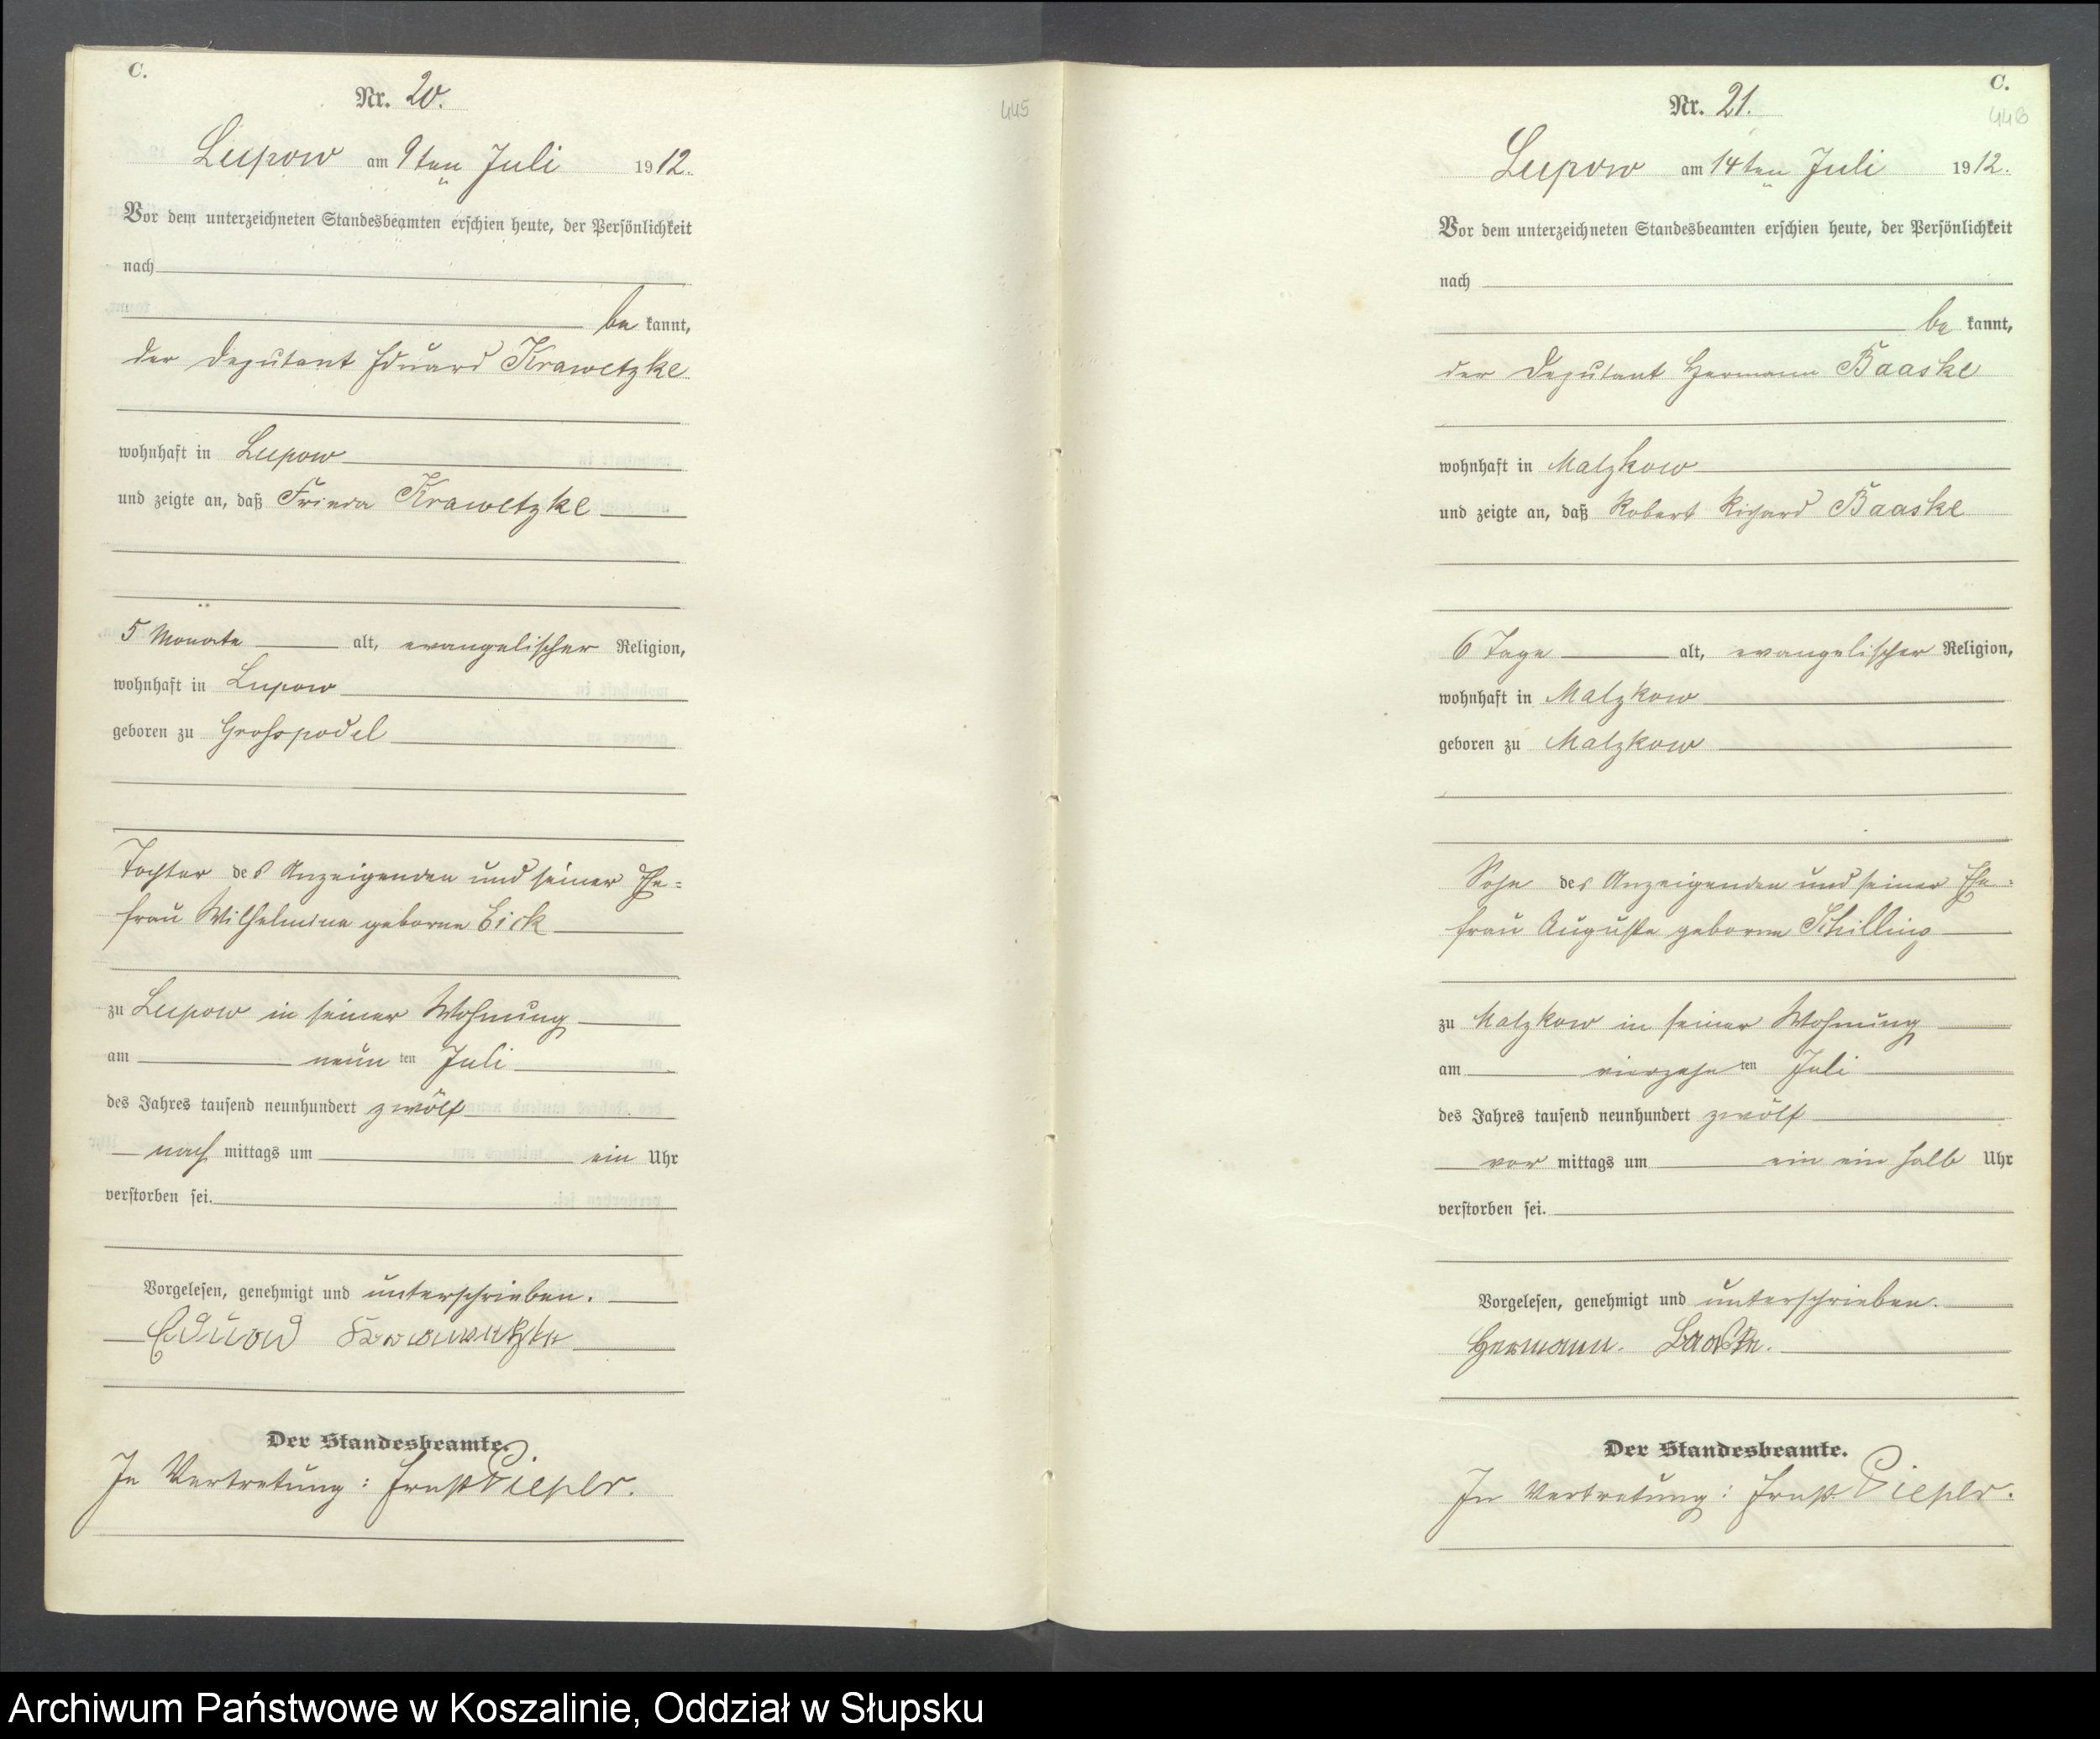 C.
Nr. 20.
Lupow am 9ten Juli 1912.
Vor dem unterzeichneten Standesbeamten erschien heute, der Persönlichkeit
nach
be kannt,
der Deputant Eduard Krawetzke
wohnhaft in Lupow
und zeigte an, daß Frieda Krawetzke
5 Monate alt, evangelischer Religion,
wohnhaft in Lupow
geboren zu Grosspodel
Tochter des Anzeigenden und seiner Ehe=
frau Wilhelmine geborne Eick
zu Lupow in seiner Wohnung
am neun ten Juli
des Jahres tausend neunhundert zwölf
nach mittags um ein Uhr
verstorben sei.
Vorgelesen, genehmigt und unterschrieben.
Eduard
Der Standesbeamte.
In Vertretung: Ernst Pieper.
445
C.
446
Nr. 21.
Lupow am 14ten Juli 1912.
Vor dem unterzeichneten Standesbeamten erschien heute, der Persönlichkeit
nach
be kannt,
der Deputant Hermann Baaske
wohnhaft in Malzkow
und zeigte an, daß Robert Richard Baaske
6 Tage alt, evangelischer Religion,
wohnhaft in Malzkow
geboren zu Malzkow
Sohn des Anzeigenden und seiner Ehe=
frau Auguste geborne Schilling
zu Malzkow in seiner Wohnung
am vierzehn ten Juli
des Jahres tausend neunhundert zwölf
vor mittags um ein ein halb Uhr
verstorben sei.
Vorgelesen, genehmigt und unterschrieben.
Hermann. Baaske.
Der Standesbeamte.
In Vertretung: Ernst Pieper.
Archiwum Państwowe w Koszalinie, Oddział w Słupsku